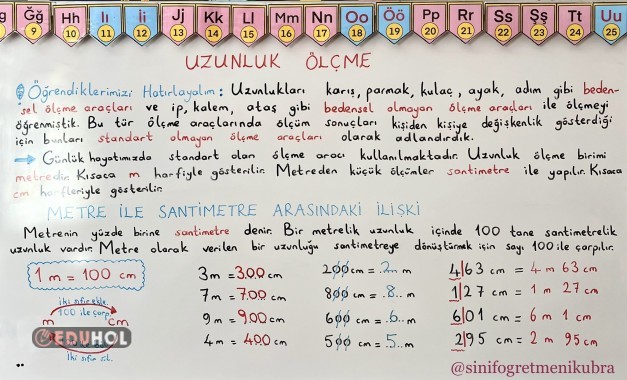 g Ğğ Hh Iı İi Jj Kk Ll Mm Nn Oo Öö Pp Rr Ss Şş Tt Uu
9 10 11 12 13 14 15 16 17 18 19 20 21 22 23 24 25
UZUNLUK ÖLÇME
Öğrendiklerimizi Hatırlayalım: Uzunlukları karış, parmak, kulaç, ayak, adım gibi beden-
sel ölçme araçları ve ip, kalem, ataş gibi bedensel olmayan ölçme araçları ile ölçmeyi
öğrenmiştik. Bu tür ölçme araçlarında ölçüm sonuçları kişiden kişiye değişkenlik gösterdiği
için bunları standart olmayan ölçme araçları olarak adlandırdık.
→ Günlük hayatımızda standart olan ölçme aracı kullanılmaktadır. Uzunluk ölçme birimi
metredir. Kısaca m harfiyle gösterilir. Metreden küçük ölçümler santimetre ile yapılır. Kısaca
cm harfleriyle gösterilir.
METRE İLE SANTİMETRE ARASINDAKİ İLİŞKİ
Metrenin yüzde birine santimetre denir. Bir metrelik uzunluk içinde 100 tane santimetrelik
uzunluk vardır. Metre olarak verilen bir uzunluğu santimetreye dönüştürmek için sayı 100 ile çarpılır.
1 m = 100 cm
iki sıfır ekle.
100 ile çarp
m cm
EDUHOL
İki sıfır sil.
3m = 300 cm
7m = 700 cm
9m = 900 cm
4m = 400 cm
200 cm = 2 m
800 cm = 8 m
600 cm = 6 m
500 cm = 5 m
4|63 cm = 4 m 63 cm
1|27 cm = 1 m 27 cm
6|01 cm = 6 m 1 cm
2|95 cm = 2 m 95 cm
@sinifogretmenikubra